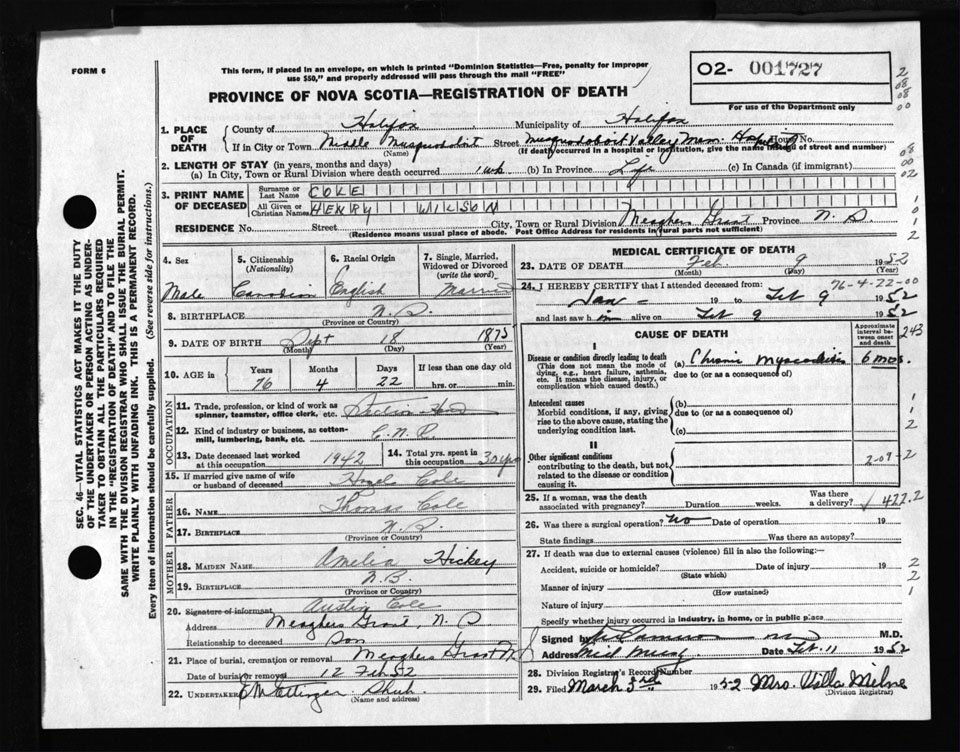 FORM 6
This form, if placed in an envelope, on which is printed "Dominion Statistics—Free, penalty for improper
use $50," and properly addressed will pass through the mail "FREE"
PROVINCE OF NOVA SCOTIA—REGISTRATION OF DEATH
02- 001727
For use of the Department only
1. PLACE OF DEATH
County of Halifax Municipality of Halifax
If in City or Town Middle Musquodobit Street Musquodoboit Valley Mem. Hospital House No.
(Name) (If death occurred in a hospital or institution, give the name instead of street and number)
2. LENGTH OF STAY (in years, months and days)
(a) In City, Town or Rural Division where death occurred 1 wk (b) In Province Life (c) In Canada (if immigrant)
3. PRINT NAME OF DECEASED
Surname or Last Name COLE
All Given or Christian Names HENRY WILSON
RESIDENCE No. Street City, Town or Rural Division Meaghers Grant Province N. S.
(Residence means usual place of abode. Post Office Address for residents in rural parts not sufficient)
4. Sex
Male
5. Citizenship
(Nationality)
Canadian
6. Racial Origin
English
7. Single, Married, Widowed or Divorced
(write the word)
Married
8. BIRTHPLACE N. S.
(Province or Country)
9. DATE OF BIRTH Sept 18 1875
(Month) (Day) (Year)
10. AGE in
Years Months Days If less than one day old
76 4 22 hrs. or min.
OCCUPATION
11. Trade, profession, or kind of work as
spinner, teamster, office clerk, etc.
12. Kind of industry or business, as cotton-
mill, lumbering, bank, etc. C.N.R.
13. Date deceased last worked
at this occupation 1942
14. Total yrs. spent in
this occupation 30 yrs
15. If married give name of wife
or husband of deceased Cole
FATHER
16. NAME Thomas Cole
17. BIRTHPLACE N. S.
(Province or Country)
MOTHER
18. MAIDEN NAME Amelia Hickey
19. BIRTHPLACE N.B.
(Province or Country)
20. Signature of informant Austin Cole
Address Meaghers Grant, N. S.
Relationship to deceased Son
21. Place of burial, cremation or removal Meaghers Grant N S
Date of burial or removal 12 Feb 52
22. UNDERTAKER Ettinger Shub.
(Name and address)
MEDICAL CERTIFICATE OF DEATH
23. DATE OF DEATH Feb 9 1952
(Month) (Day) (Year)
76-4-22-00
24. I HEREBY CERTIFY that I attended deceased from:
Jan - 19 to Feb 9 1952
and last saw him alive on Feb 9 1952
CAUSE OF DEATH
Approximate interval between onset and death
243
I
Disease or condition directly leading to death
(This does not mean the mode of
dying, e.g., heart failure, asthenia,
etc. It means the disease, injury, or
complication which caused death.)
(a) Chronic Myocarditis 6 mos.
due to (or as a consequence of)
Antecedent causes
Morbid conditions, if any, giving
rise to the above cause, stating the
underlying condition last.
(b)
due to (or as a consequence of)
(c)
II
Other significant conditions
contributing to the death, but not
related to the disease or condition
causing it.
2-09-2
25. If a woman, was the death
associated with pregnancy? Duration weeks. Was there a delivery?
422.2
26. Was there a surgical operation? No Date of operation 19
State findings Was there an autopsy?
27. If death was due to external causes (violence) fill in also the following:—
Accident, suicide or homicide? Date of injury 19
(State which)
Manner of injury
(How sustained)
Nature of injury
Specify whether injury occurred in industry, in home, or in public place
Signed by M.D.
Address Mid Musq Date Feb. 11 1952
28. Division Registrar's Record Number
29. Filed March 3rd 1952 Mrs. Villa Milne
(Division Registrar)
SEC. 46—VITAL STATISTICS ACT MAKES IT THE DUTY
OF THE UNDERTAKER OR PERSON ACTING AS UNDER-
TAKER TO OBTAIN ALL THE PARTICULARS REQUIRED
IN THE "REGISTRATION OF DEATH" AND TO FILE THE
SAME WITH THE DIVISION REGISTRAR WHO SHALL ISSUE THE BURIAL PERMIT.
WRITE PLAINLY WITH UNFADING INK. THIS IS A PERMANENT RECORD.
Every item of information should be carefully supplied. (See reverse side for instructions.)